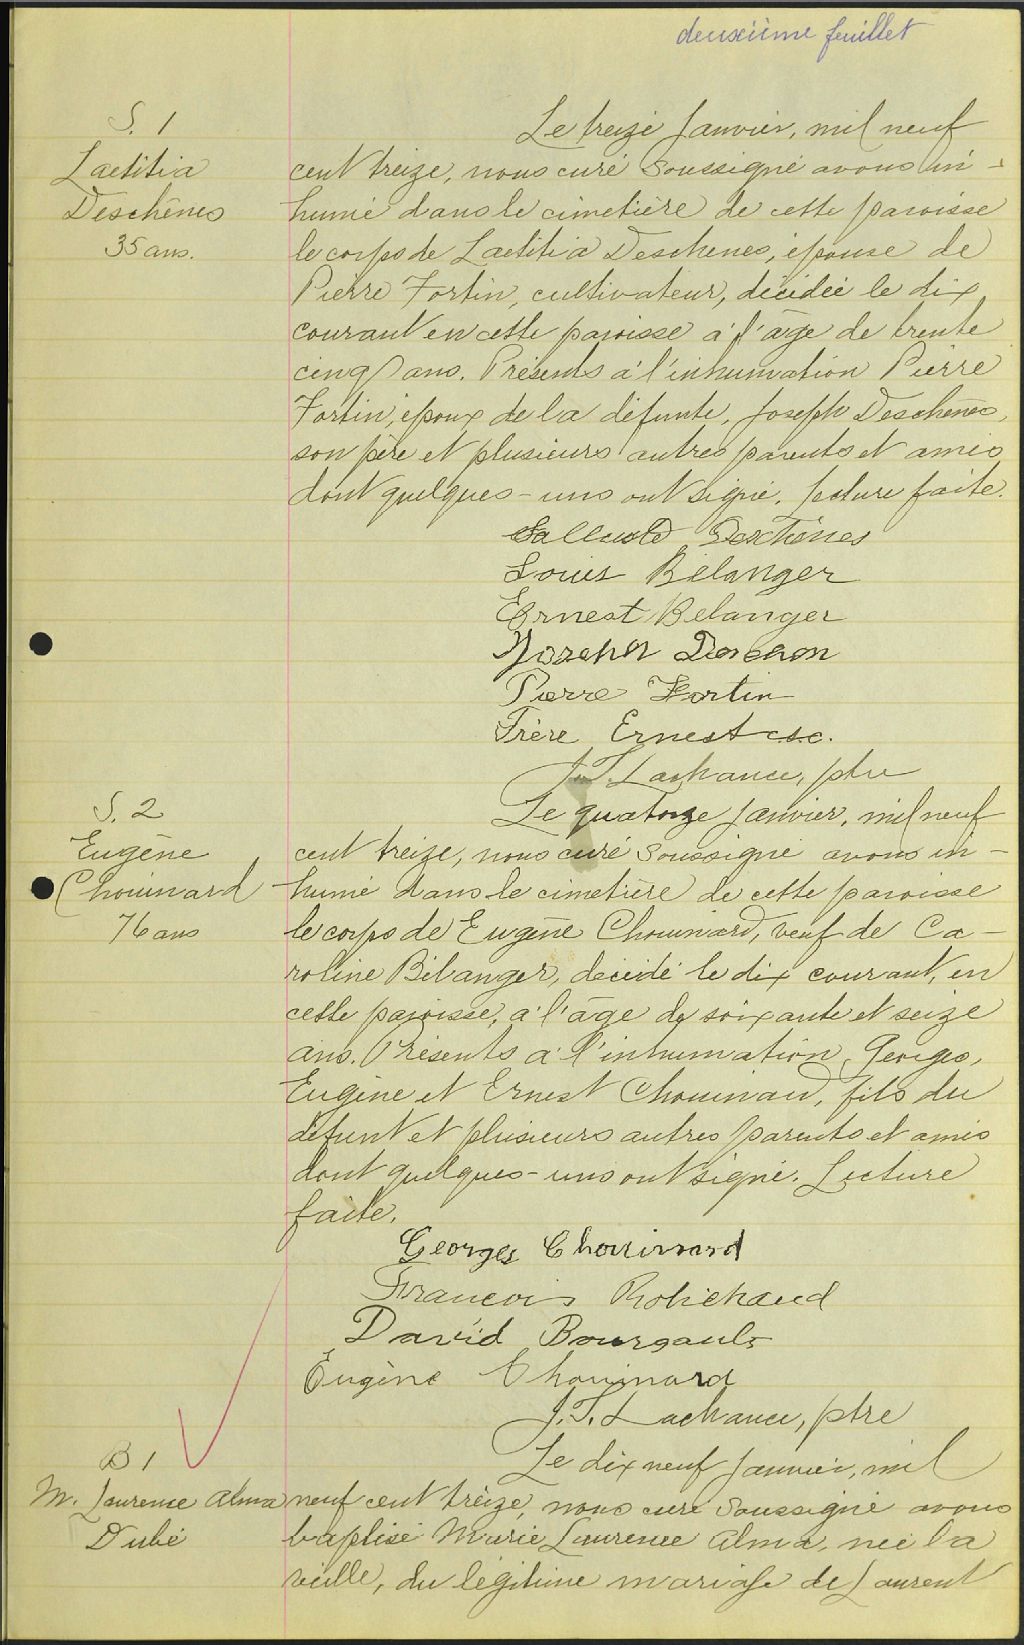 deuxième feuillet
S. 1
Laetitia
Deschênes
35 ans.
Le treize Janvier, mil neuf
cent treize, nous curé soussigné avons in-
humé dans le cimetière de cette paroisse
le corps de Laetitia Deschenes, épouse de
Pierre Fortin, cultivateur, décédée le dix
courant en cette paroisse à l'âge de trente
cinq ans. Présents à l'inhumation Pierre
Fortin, époux de la défunte, Joseph Deschênes,
son père et plusieurs autres parents et amis
dont quelques-uns ont signé. Lecture faite.
Salluste Deschênes
Louis Bélanger
Ernest Belanger
Joseph
Pierre Fortin
Frère Ernest c.s.c.
J.T. Lachance, ptre
S. 2
Eugène
Chouinard
76 ans
Le quatorze Janvier, mil neuf
cent treize, nous curé soussigné avons in-
humé dans le cimetière de cette paroisse
le corps de Eugène Chouinard, veuf de Ca-
roline Bélanger, décédé le dix courant, en
cette paroisse, à l'âge de soixante et seize
ans. Présents à l'inhumation, Georges,
Eugène et Ernest Chouinard, fils du
défunt et plusieurs autres parents et amis
dont quelques-uns ont signé. Lecture
faite.
Georges Chouinard
Francois Robichaud
David Bourgault
Eugène Chouinard
J.T. Lachance, ptre
B 1
M. Laurence Alma
Dubé
Le dix neuf Janvier, mil
neuf cent treize, nous curé soussigné avons
baptisé Marie Laurence Alma, née la
veille, du légitime mariage de Laurent